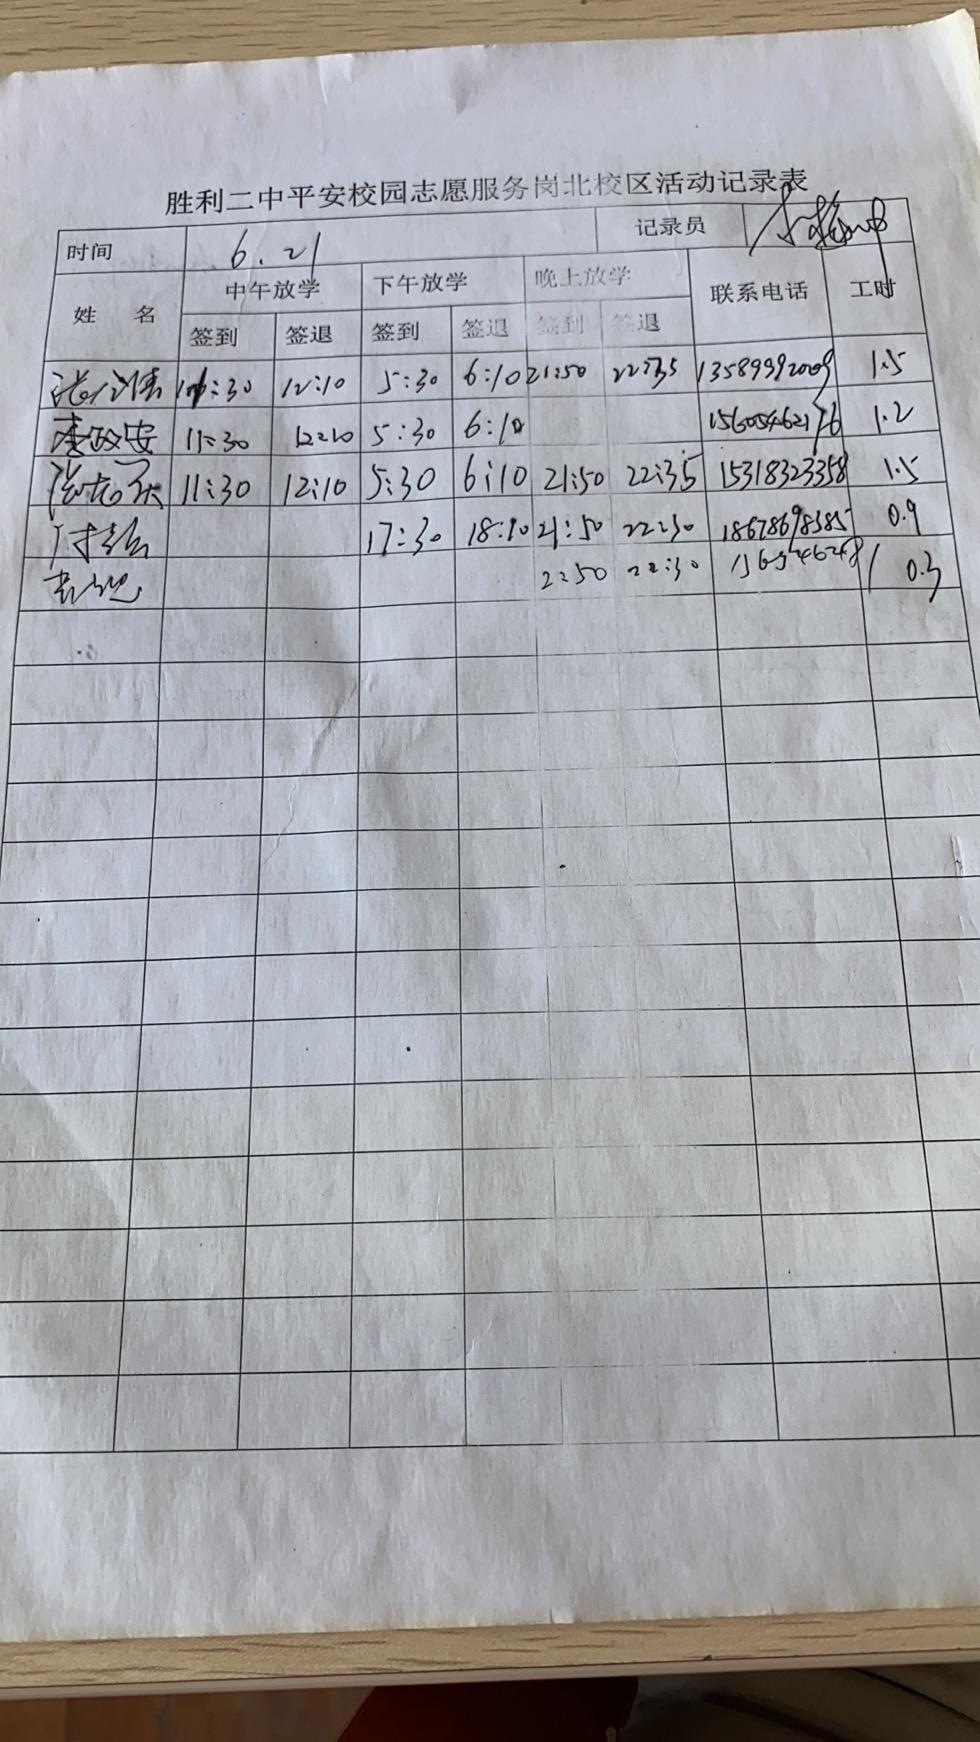 胜利二中平安校园志愿服务岗北校区活动记录表
时间 6.21 记录员
姓 名 中午放学 下午放学 晚上放学 联系电话 工时
签到 签退 签到 签退 签到 签退
11:30 12:10 5:30 6:10 21:50 22:35 13589992009 1.5
李政安 11:30 12:10 5:30 6:10 1.2
11:30 12:10 5:30 6:10 21:50 22:35 15318323358 1.5
17:30 18:10 21:50 22:30 18678698385 0.9
2:50 22:30 0.3